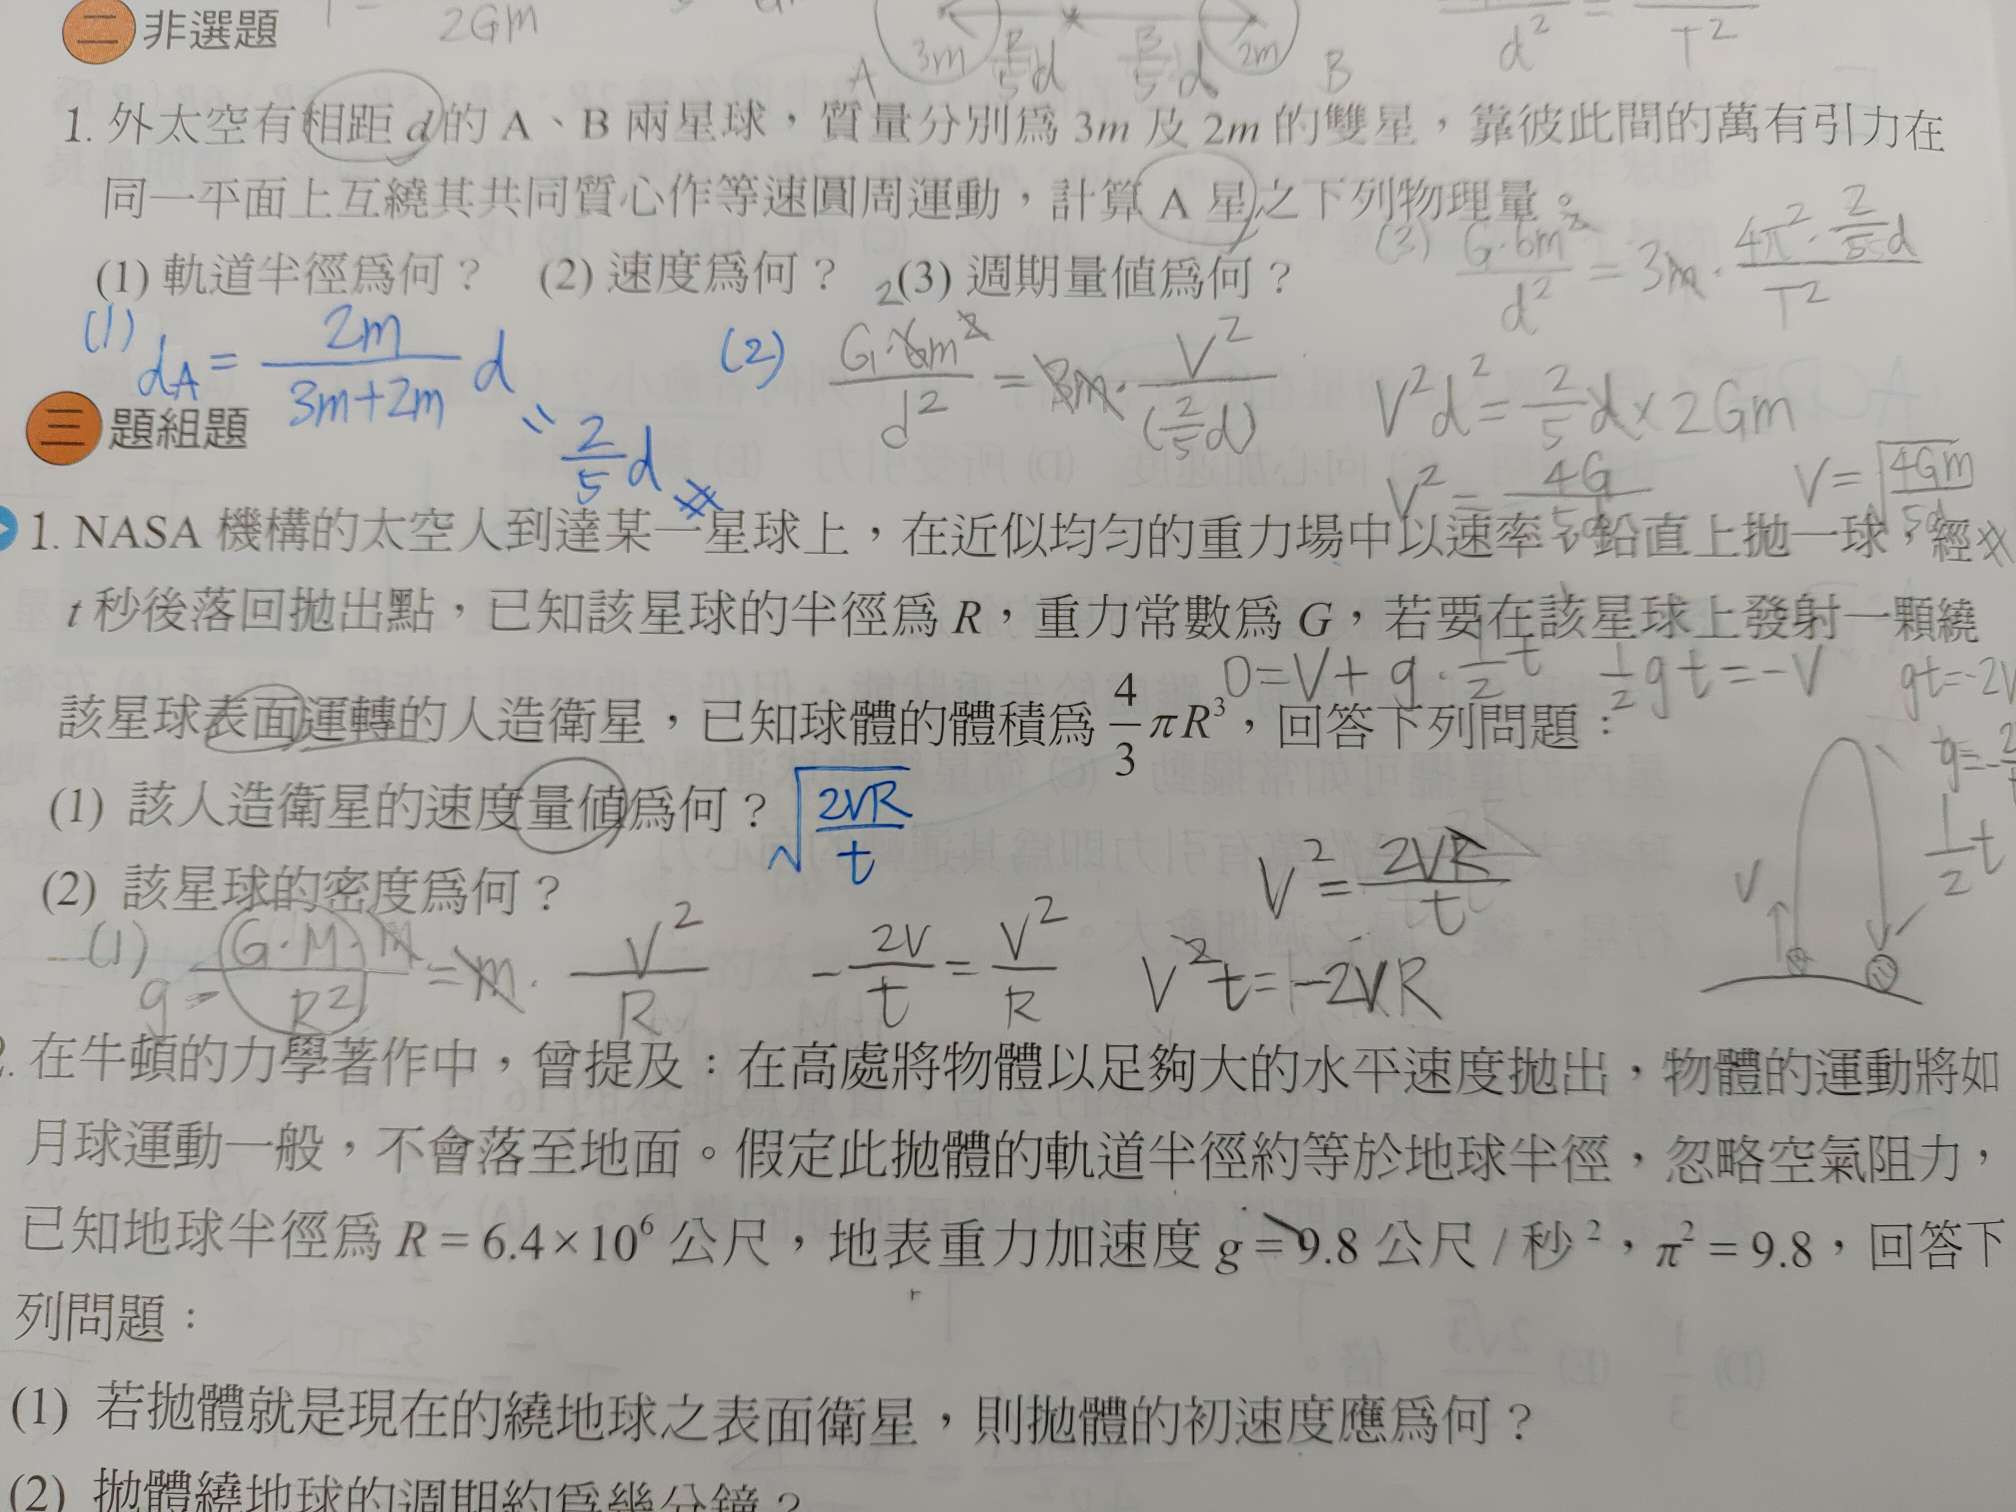 二 非選題
2Gm
3m
d
d
2m
A
B
d²
T²
1. 外太空有相距 d 的 A、B 兩星球，質量分別為 3m 及 2m 的雙星，靠彼此間的萬有引力在
同一平面上互繞其共同質心作等速圓周運動，計算 A 星之下列物理量。
(1) 軌道半徑為何？ (2) 速度為何？ (3) 週期量值為何？
(3) G·6m² / d² = 3m · 4π² · 2/5 d / T²
(1) dA = 2m / 3m+2m d
= 2/5 d
(2) G·6m² / d² = 3m · V² / (2/5 d)
2
V²d² = 2/5 d × 2Gm
V² = 4G / 5d
V = √4Gm / 5d
三 題組題
1. NASA 機構的太空人到達某一星球上，在近似均勻的重力場中以速率 v 鉛直上拋一球，經
t 秒後落回拋出點，已知該星球的半徑為 R，重力常數為 G，若要在該星球上發射一顆繞
0 = V + g · 1/2 t
1/2 gt = -V
gt = -2V
該星球表面運轉的人造衛星，已知球體的體積為 4/3 πR³，回答下列問題：
(1) 該人造衛星的速度量值為何？ √2VR / t
1/2 t
V
(2) 該星球的密度為何？
V² = 2VR / t
(1) g = G·M·m / R² = m · V² / R
- 2V / t = V² / R
V²t = -2VR
2. 在牛頓的力學著作中，曾提及：在高處將物體以足夠大的水平速度拋出，物體的運動將如
月球運動一般，不會落至地面。假定此拋體的軌道半徑約等於地球半徑，忽略空氣阻力，
已知地球半徑為 R = 6.4×10⁶ 公尺，地表重力加速度 g = 9.8 公尺 / 秒²，π² = 9.8，回答下
列問題：
(1) 若拋體就是現在的繞地球之表面衛星，則拋體的初速度應為何？
(2) 拋體繞地球的週期約為幾分鐘？